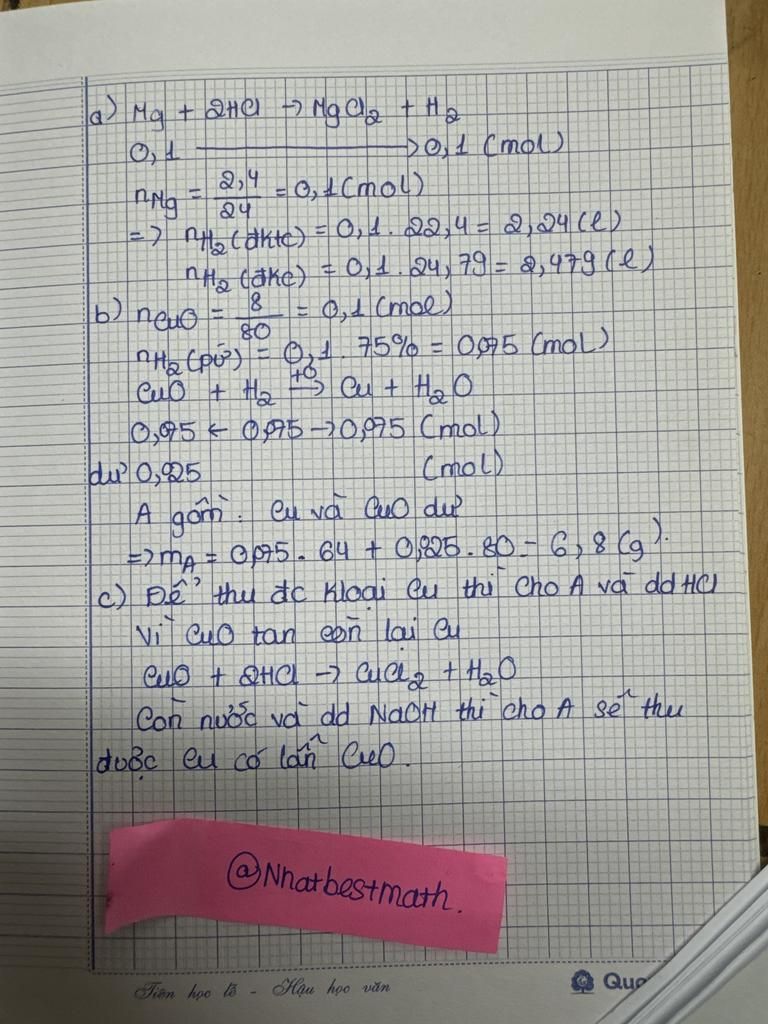 a) Mg + 2HCl → MgCl₂ + H₂
0,1 → 0,1 (mol)
nMg = 2,4/24 = 0,1 (mol)
=> nH₂(đktc) = 0,1 . 22,4 = 2,24 (l)
nH₂(đkc) = 0,1 . 24,79 = 2,479 (l)
b) nCuO = 8/80 = 0,1 (mol)
nH₂(pứ) = 0,1 . 75% = 0,075 (mol)
CuO + H₂ →(t⁰) Cu + H₂O
0,075 ← 0,075 → 0,075 (mol)
dư 0,025 (mol)
A gồm: Cu và CuO dư
=> mA = 0,075 . 64 + 0,025 . 80 = 6,8 (g).
c) Để thu đc Kloại Cu thì cho A và dd HCl
Vì CuO tan còn lại Cu
CuO + 2HCl → CuCl₂ + H₂O
Còn nước và dd NaOH thì cho A sẽ thu
được Cu có lẫn CuO.
@Nhatbestmath.
Tiên học lễ - Hậu học văn